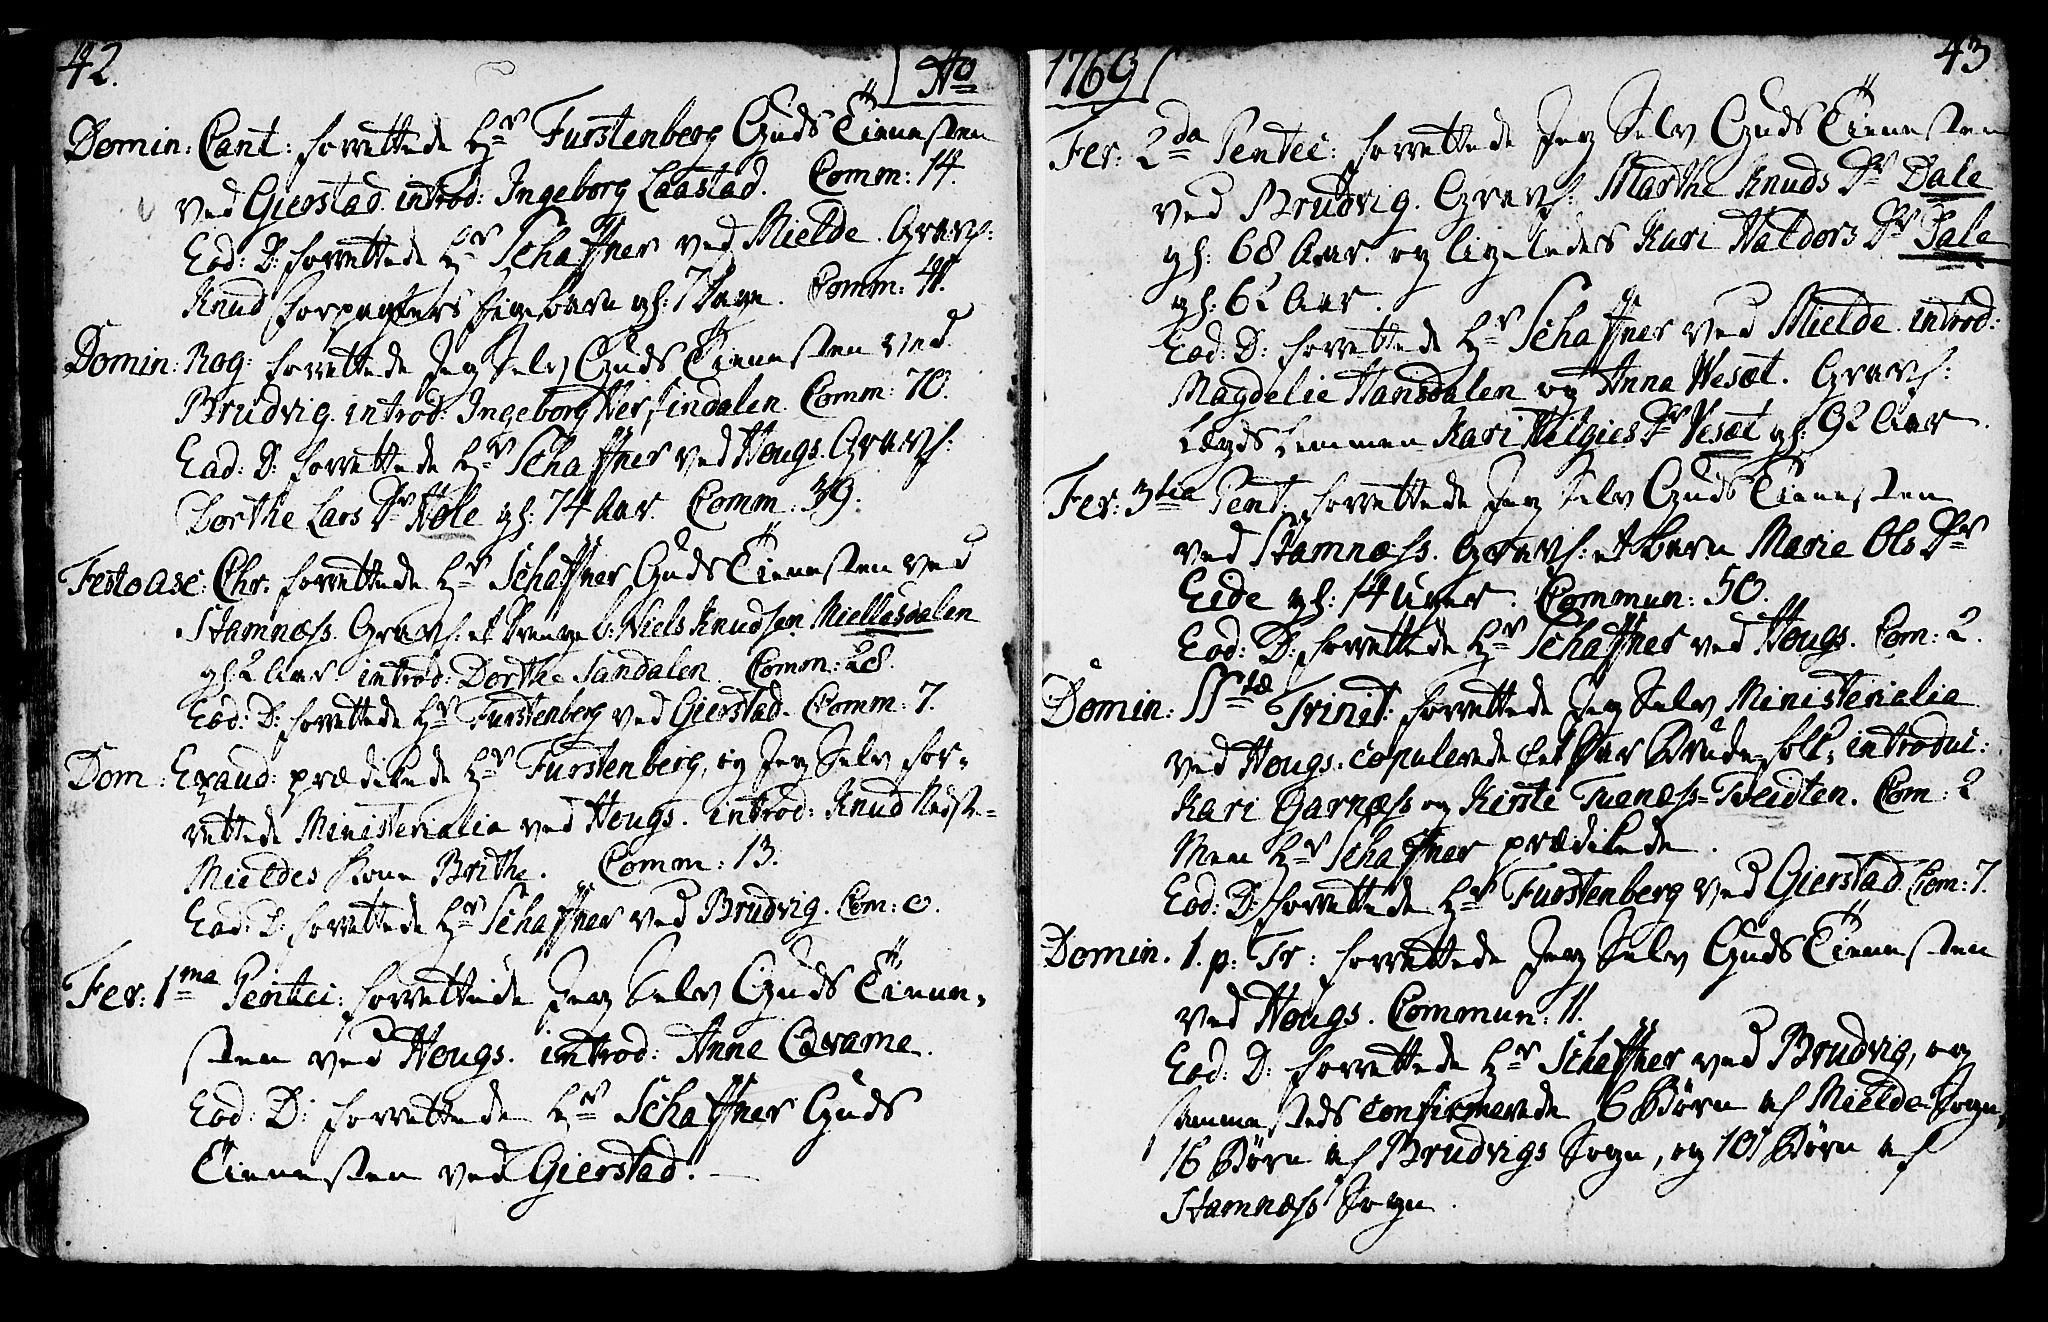 42.
Ao
Domin: Cant: forrettede Hr Furstenberg Guds Tienesten
ved Gierstad. introd: Ingeborg Laastad. Comm: 14.
Eod: D: forrettede Hr Schaffner ved Mielde. Gravf:
Knud Forpagters Pigebarn gl: 7 Dage. Comm: 41.
Domin: Rog: forrettede Jeg Selv Guds Tienesten ved
Brudvig. introd: Ingeborg Hersindalen. Comm: 70.
Eod: D: forrettede Hr Schaffner ved Hougs. Gravf:
Dorthe Lars Dr Hole gl: 74 Aar. Comm: 39.
Festo Asc: Chr. forrettede Hr Schaffner Guds Tienesten ved
Stamnæss. Gravf: et Drenge b: Niels Knudsen Miellesdalen
gl: 2 Aar introd: Dorthe Sandalen. Comm: 28.
Eod: D: forrettede Hr Furstenberg ved Gierstad. Comm: 7.
Dom: Exaud: prædikede Hr Furstenberg, og Jeg Selv for-
rettede Ministerialia ved Hougs. introd: Knud Nedste-
Mieldes Kone Brithe. Comm: 13.
Eod: D: forrettede Hr Schaffner ved Brudvig. Com: 0.
Fer: 1ma Pentec: forrettede Jeg Selv Guds Tiene-
sten ved Hougs. introd: Anne Qvame.
Eod: D: forrettede Hr Schaffner Guds
Tienesten ved Gierstad.
1769
43
Fer: 2da Pentec: forrettede Jeg Selv Guds Tienesten
ved Brudvig. Gravf: Marthe Knuds Dr Dale
gl: 68 Aar. og ligeledes Kari Haldors Dr Dale
gl: 62 Aar.
Eod: D: forrettede Hr Schaffner ved Mielde. introd:
Magdelie Hansdalen og Anna Wesæt. Gravf:
Lægds Lemmen Kari Helgies Dr Vesæt gl: 92 Aar.
Fer: 3tia Pent. forrettede Jeg Selv Guds Tienesten
ved Stamnæss. Gravf: et barn Marie Ols Dr
Eide gl: 14 Uger. Commun: 50.
Eod: D: forrettede Hr Schaffner ved Hougs. Com: 2.
Domin: SStæ Trinit: forrettede Jeg Selv Ministerialia
ved Hougs. copulerede Eet Par Brude-folk, introduc:
Kari Garnæss og Kirste Tuenæss-Tveidten. Com: 2
Men Hr Schaffner prædikede.
Eod: D: forrettede Hr Furstenberg ved Gierstad. Com: 7.
Domin. 1. p: Tr: forrettede Jeg Selv Guds Tienesten
ved Hougs. Commun: 11.
Eod: D: forrettede Hr Schaffner ved Brudvig, og
sammesteds confirmerede 6 Børn af Mielde Sogn,
16 Børn af Brudvigs Sogn, og 10 Børn af
Stamnæss Sogn.